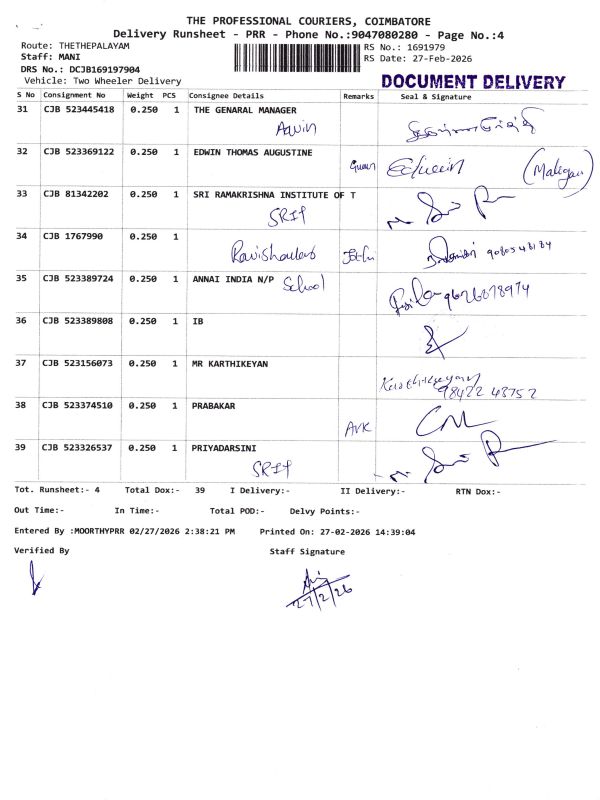 THE PROFESSIONAL COURIERS, COIMBATORE
Delivery Runsheet - PRR - Phone No.:9047080280 - Page No.:4
Route: THETHEPALAYAM
RS No.: 1691979
Staff: MANI
RS Date: 27-Feb-2026
DRS No.: DCJB169197904
Vehicle: Two Wheeler Delivery
DOCUMENT DELIVERY
S No Consignment No Weight PCS Consignee Details Remarks Seal & Signature
31 CJB 523445418 0.250 1 THE GENARAL MANAGER
Aavin
32 CJB 523369122 0.250 1 EDWIN THOMAS AUGUSTINE
33 CJB 81342202 0.250 1 SRI RAMAKRISHNA INSTITUTE OF T
SRIT
34 CJB 1767990 0.250 1
35 CJB 523389724 0.250 1 ANNAI INDIA N/P School
9626878974
36 CJB 523389808 0.250 1 IB
37 CJB 523156073 0.250 1 MR KARTHIKEYAN
Karthikeyan
98422 48752
38 CJB 523374510 0.250 1 PRABAKAR
AVK
39 CJB 523326537 0.250 1 PRIYADARSINI
SRIT
Tot. Runsheet:- 4 Total Dox:- 39 I Delivery:- II Delivery:- RTN Dox:-
Out Time:- In Time:- Total POD:- Delvy Points:-
Entered By :MOORTHYPRR 02/27/2026 2:38:21 PM Printed On: 27-02-2026 14:39:04
Verified By Staff Signature
27/2/26